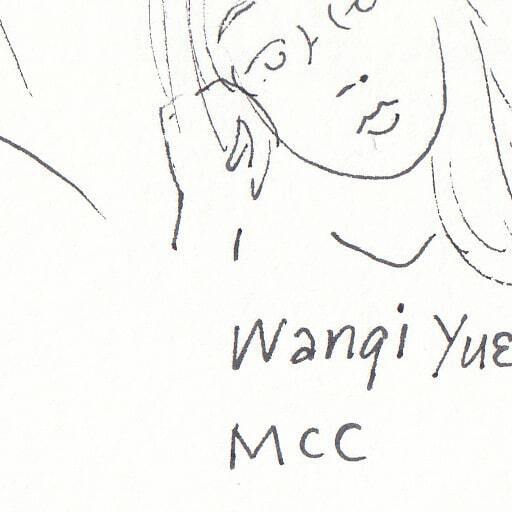 Wanqi Yue
MCC